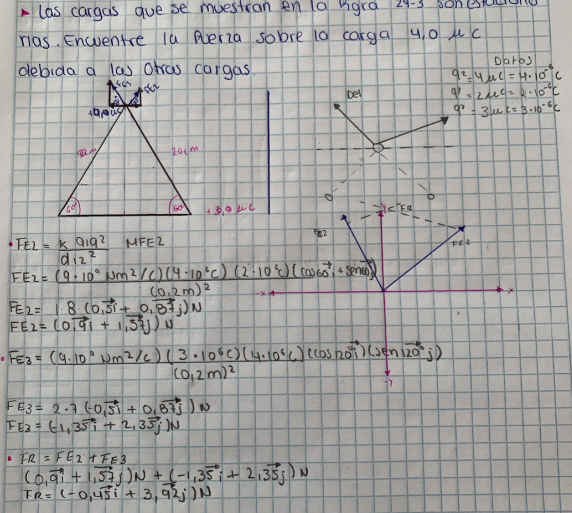 ▸ Las cargas que se muestran en la figra 24-3 son estaciona
rias. Encuentre la fuerza sobre la carga 4,0 μc
debida a las otras cargas.
Datos
q²= 4μc = 4·10⁻⁶c
q¹ = 2μc = 2·10⁻⁶c
q³ = 3μc = 3·10⁻⁶c
FE2
20cm
60°
60°
+3,0 μc
FR
FE2
-x
x
-y
• FE2 = K q1q² MFE2
d12²
FE2 = (9·10⁹ Nm²/c)(4·10⁻⁶c)(2·10⁻⁶c)(cos60°i + sen60°j)
(0,2m)²
FE2 = 1.8 (0,5i + 0,87j)N
FE2 = (0,9i + 1,57j)N
• FE3 = (9·10⁹ Nm²/c)(3·10⁻⁶c)(4·10⁻⁶c)(cos120°i)(sen120°j)
(0,2m)²
FE3 = 2.7 (-0,5i + 0,87j)N
FE3 = (-1,35i + 2,35j)N
• FR = FE2 + FE3
(0,9i + 1,57j)N + (-1,35i + 2,35j)N
FR = (-0,45i + 3,92j)N